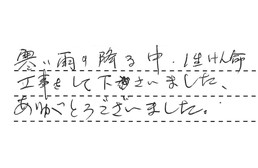 寒い雨の降る中、1生けん命
工事をして下さいました、
ありがとうございました。